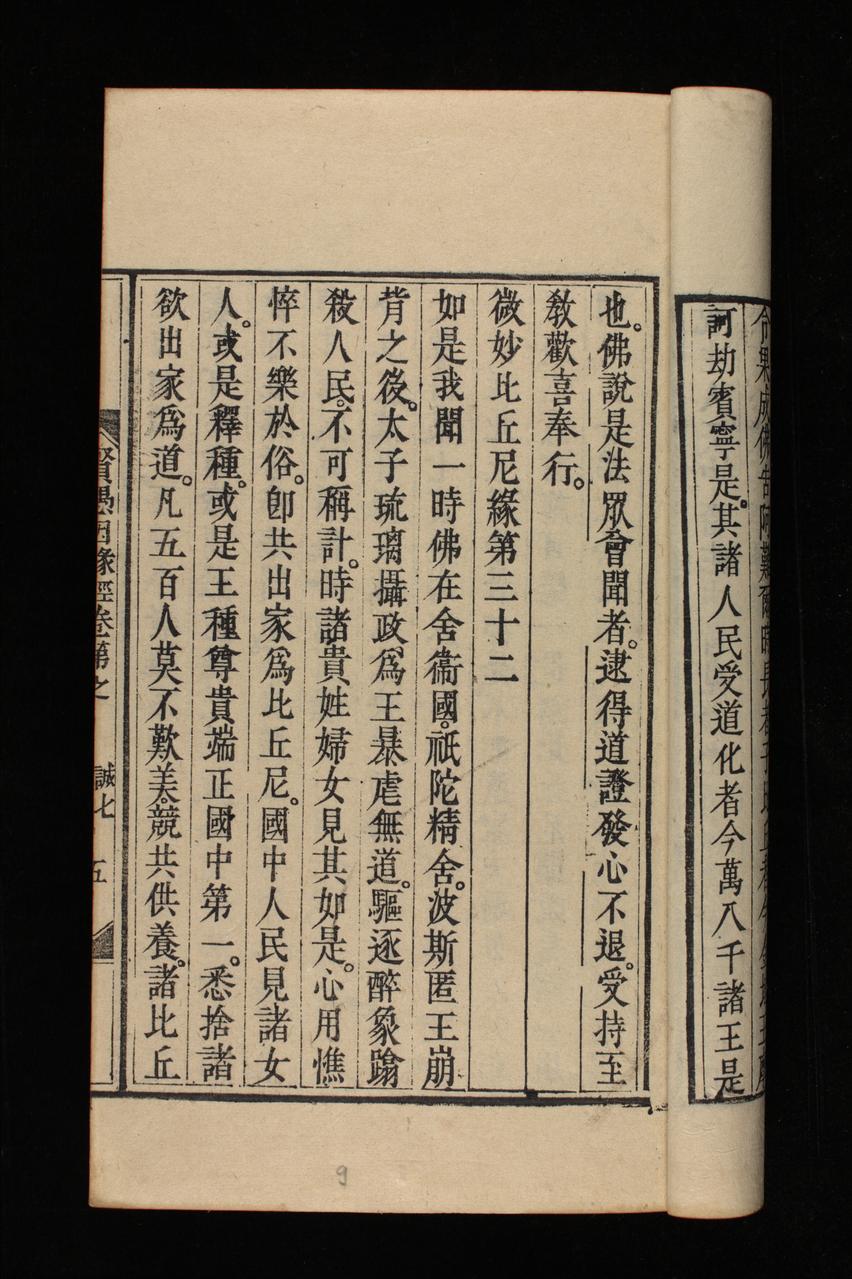 果成佛告阿難爾時長者子比丘者今金地王
訶劫賓寧是。其諸人民受道化者今萬八千諸王是
也。佛說是法眾會聞者。逮得道證發心不退。受持至
教歡喜奉行。
微妙比丘尼緣第三十二
如是我聞一時佛在舍衞國。祇陀精舍。波斯匿王崩
背之後。太子琉璃攝政爲王暴虐無道。驅逐醉象蹹
殺人民。不可稱計。時諸貴姓婦女見其如是。心用憔
悴不樂於俗。卽共出家爲比丘尼。國中人民見諸女
人。或是釋種。或是王種尊貴端正國中第一。悉捨諸
欲出家爲道。凡五百人莫不歎羨。競共供養。諸比丘
賢愚因緣經卷第之 誠七 五
9